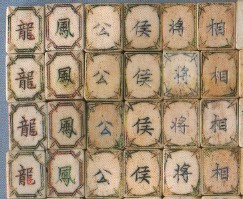 龍 鳳 公 侯 将 相
龍 鳳 公 侯 将 相
龍 鳳 公 侯 将 相
龍 鳳 公 侯 将 相